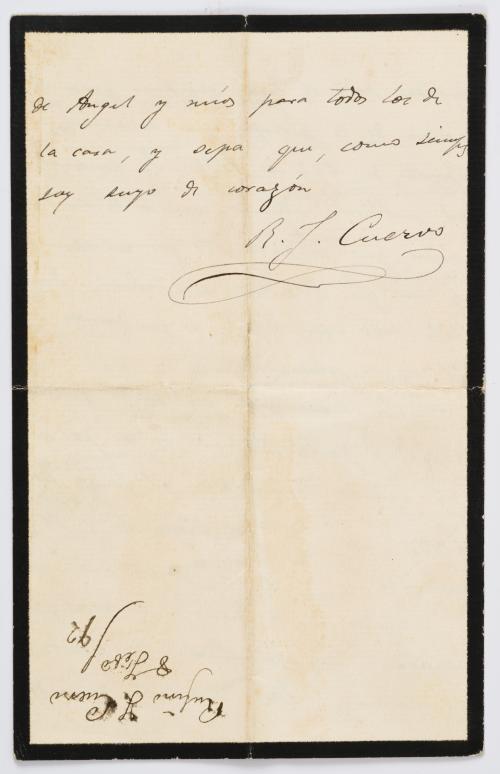 de Angel y míos para todos los de
la casa, y sepa que, como siempre
soy suyo de corazón
R. J. Cuervo
Rufino J. Cuervo
8 Feb
/92